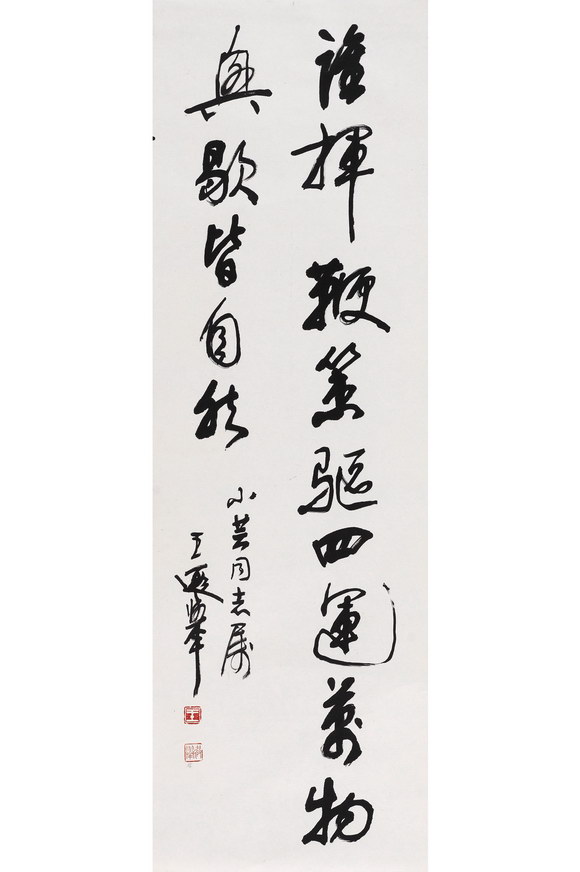 誰揮鞭策驅四運萬物
興歇皆自然
小芸同志屬
王遐舉